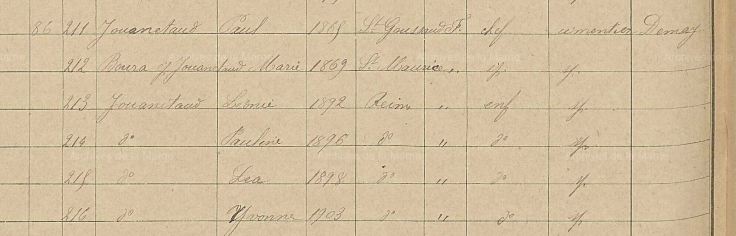 86 211 Jouanetaud Paul 1865 St Goussaud F. chef cimentier Demay
212 Boura f Jouanetaud Marie 1869 St Maurice " id
213 Jouanetaud 1892 Reims " enf
214 do Pauline 1896 do " do
215 do Léa 1898 do " do
216 do Yvonne 1903 do " do